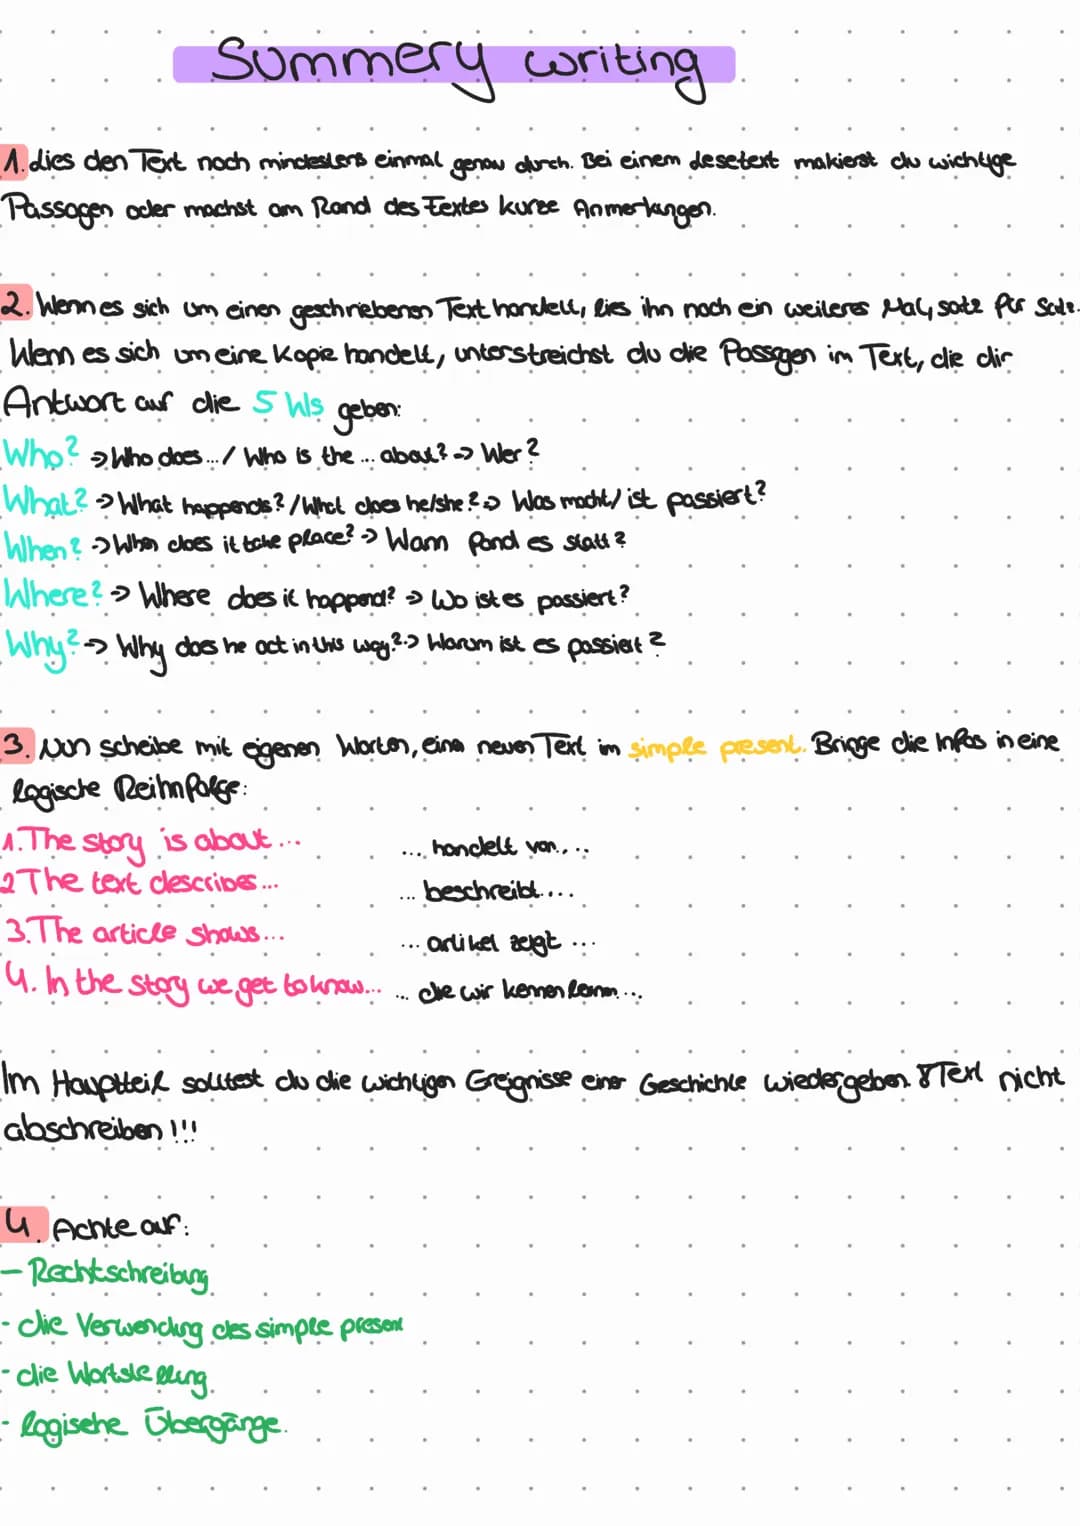 Summery writing
1. dies den Text noch mindestens einmal genau durch. Bei einem desetext makierst du wichtige
Passagen oder machst am Rand des Textes kurze Anmerkungen.
2. Wenn es sich um einen geschriebenen Text handelt, lies ihn noch ein weiteres Mal, satz für Satz.
Wenn es sich um eine Kopie handelt, unterstreichst du die Passagen im Text, die dir
Antwort auf die 5 Ws geben:
Who? → Who does ... / Who is the ... about? → Wer?
What? → What happends? / What does he/she? → Was macht / ist passiert?
When? → When does it take place? → Wann fand es statt?
Where? → Where does it happend? → Wo ist es passiert?
Why? → Why does he act in this way? → Warum ist es passiert?
3. Nun scheibe mit eigenen Worten, eine neuen Text im simple present. Bringe die Infos in eine
logische Reihnfolge:
1. The story is about ... ... handelt von ...
2 The text describes ... ... beschreibt ...
3. The article shows ... ... artikel zeigt ...
4. In the story we get to know ... ... die wir kennen lernen ...
Im Hauptteil solltest du die wichtigen Ereignisse einer Geschichte wiedergeben. Text nicht
abschreiben !!!
4. Achte auf:
- Rechtschreibung
- die Verwendung des simple present
- die Wortstellung
- logische Übergänge.